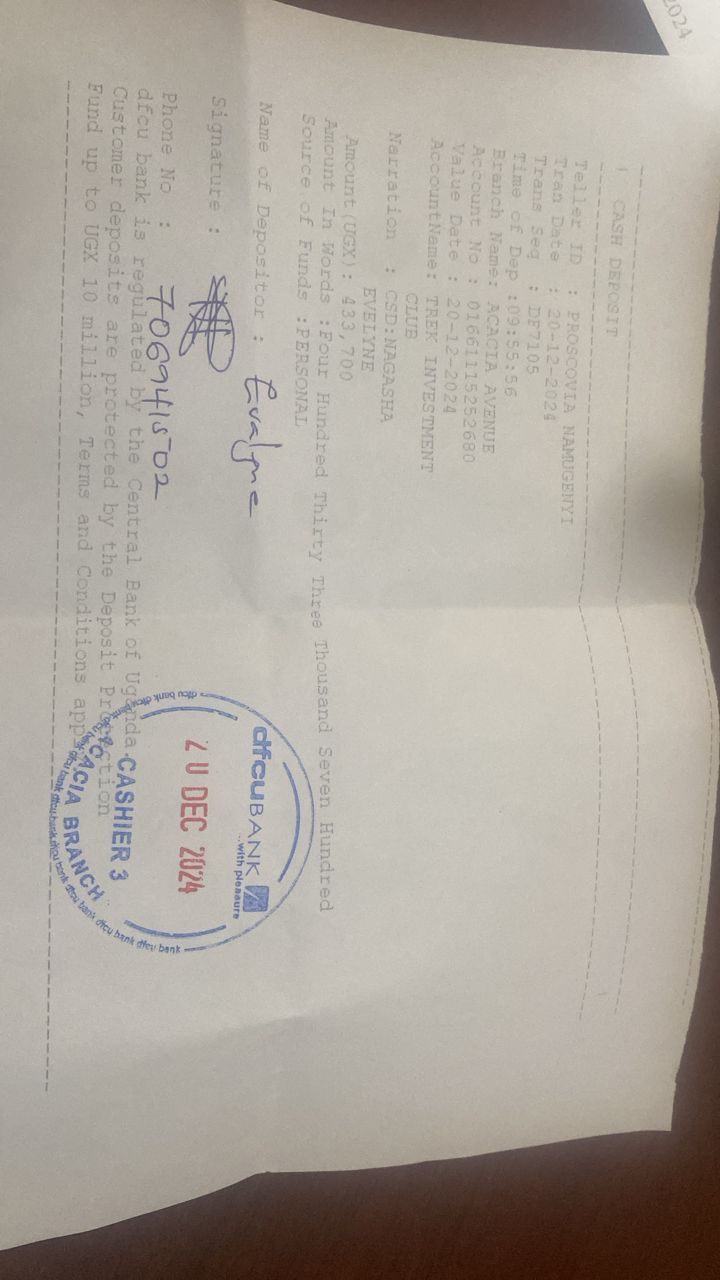 2024
CASH DEPOSIT
Teller ID : PROSCOVIA NAMUGENYI
Tran Date : 20-12-2024
Trans Seq : DF7105
Time of Dep :09:55:56
Branch Name: ACACIA AVENUE
Account No : 01661115252680
Value Date : 20-12-2024
AccountName: TREK INVESTMENT
CLUB
Narration : CSD:NAGASHA
EVELYNE
Amount(UGX): 433,700
Amount In Words :Four Hundred Thirty Three Thousand Seven Hundred
Source of Funds :PERSONAL
Name of Depositor : Evalyne
Signature :
Phone No : 706941502
dfcu bank is regulated by the Central Bank of Uganda.
Customer deposits are protected by the Deposit Protection
Fund up to UGX 10 million, Terms and Conditions app
dfcu BANK
...with pleasure
20 DEC 2024
CASHIER 3
ACACIA BRANCH
dfcu bank dfcu bank dfcu bank dfcu bank dfcu bank dfcu bank